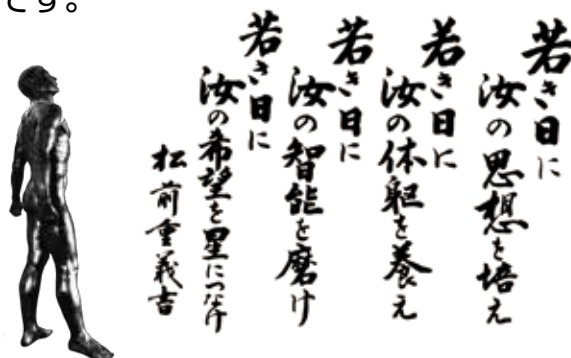 です。
若き日に
汝の思想を培え
若き日に
汝の体躯を養え
若き日に
汝の智能を磨け
若き日に
汝の希望を星につなげ
松前重義